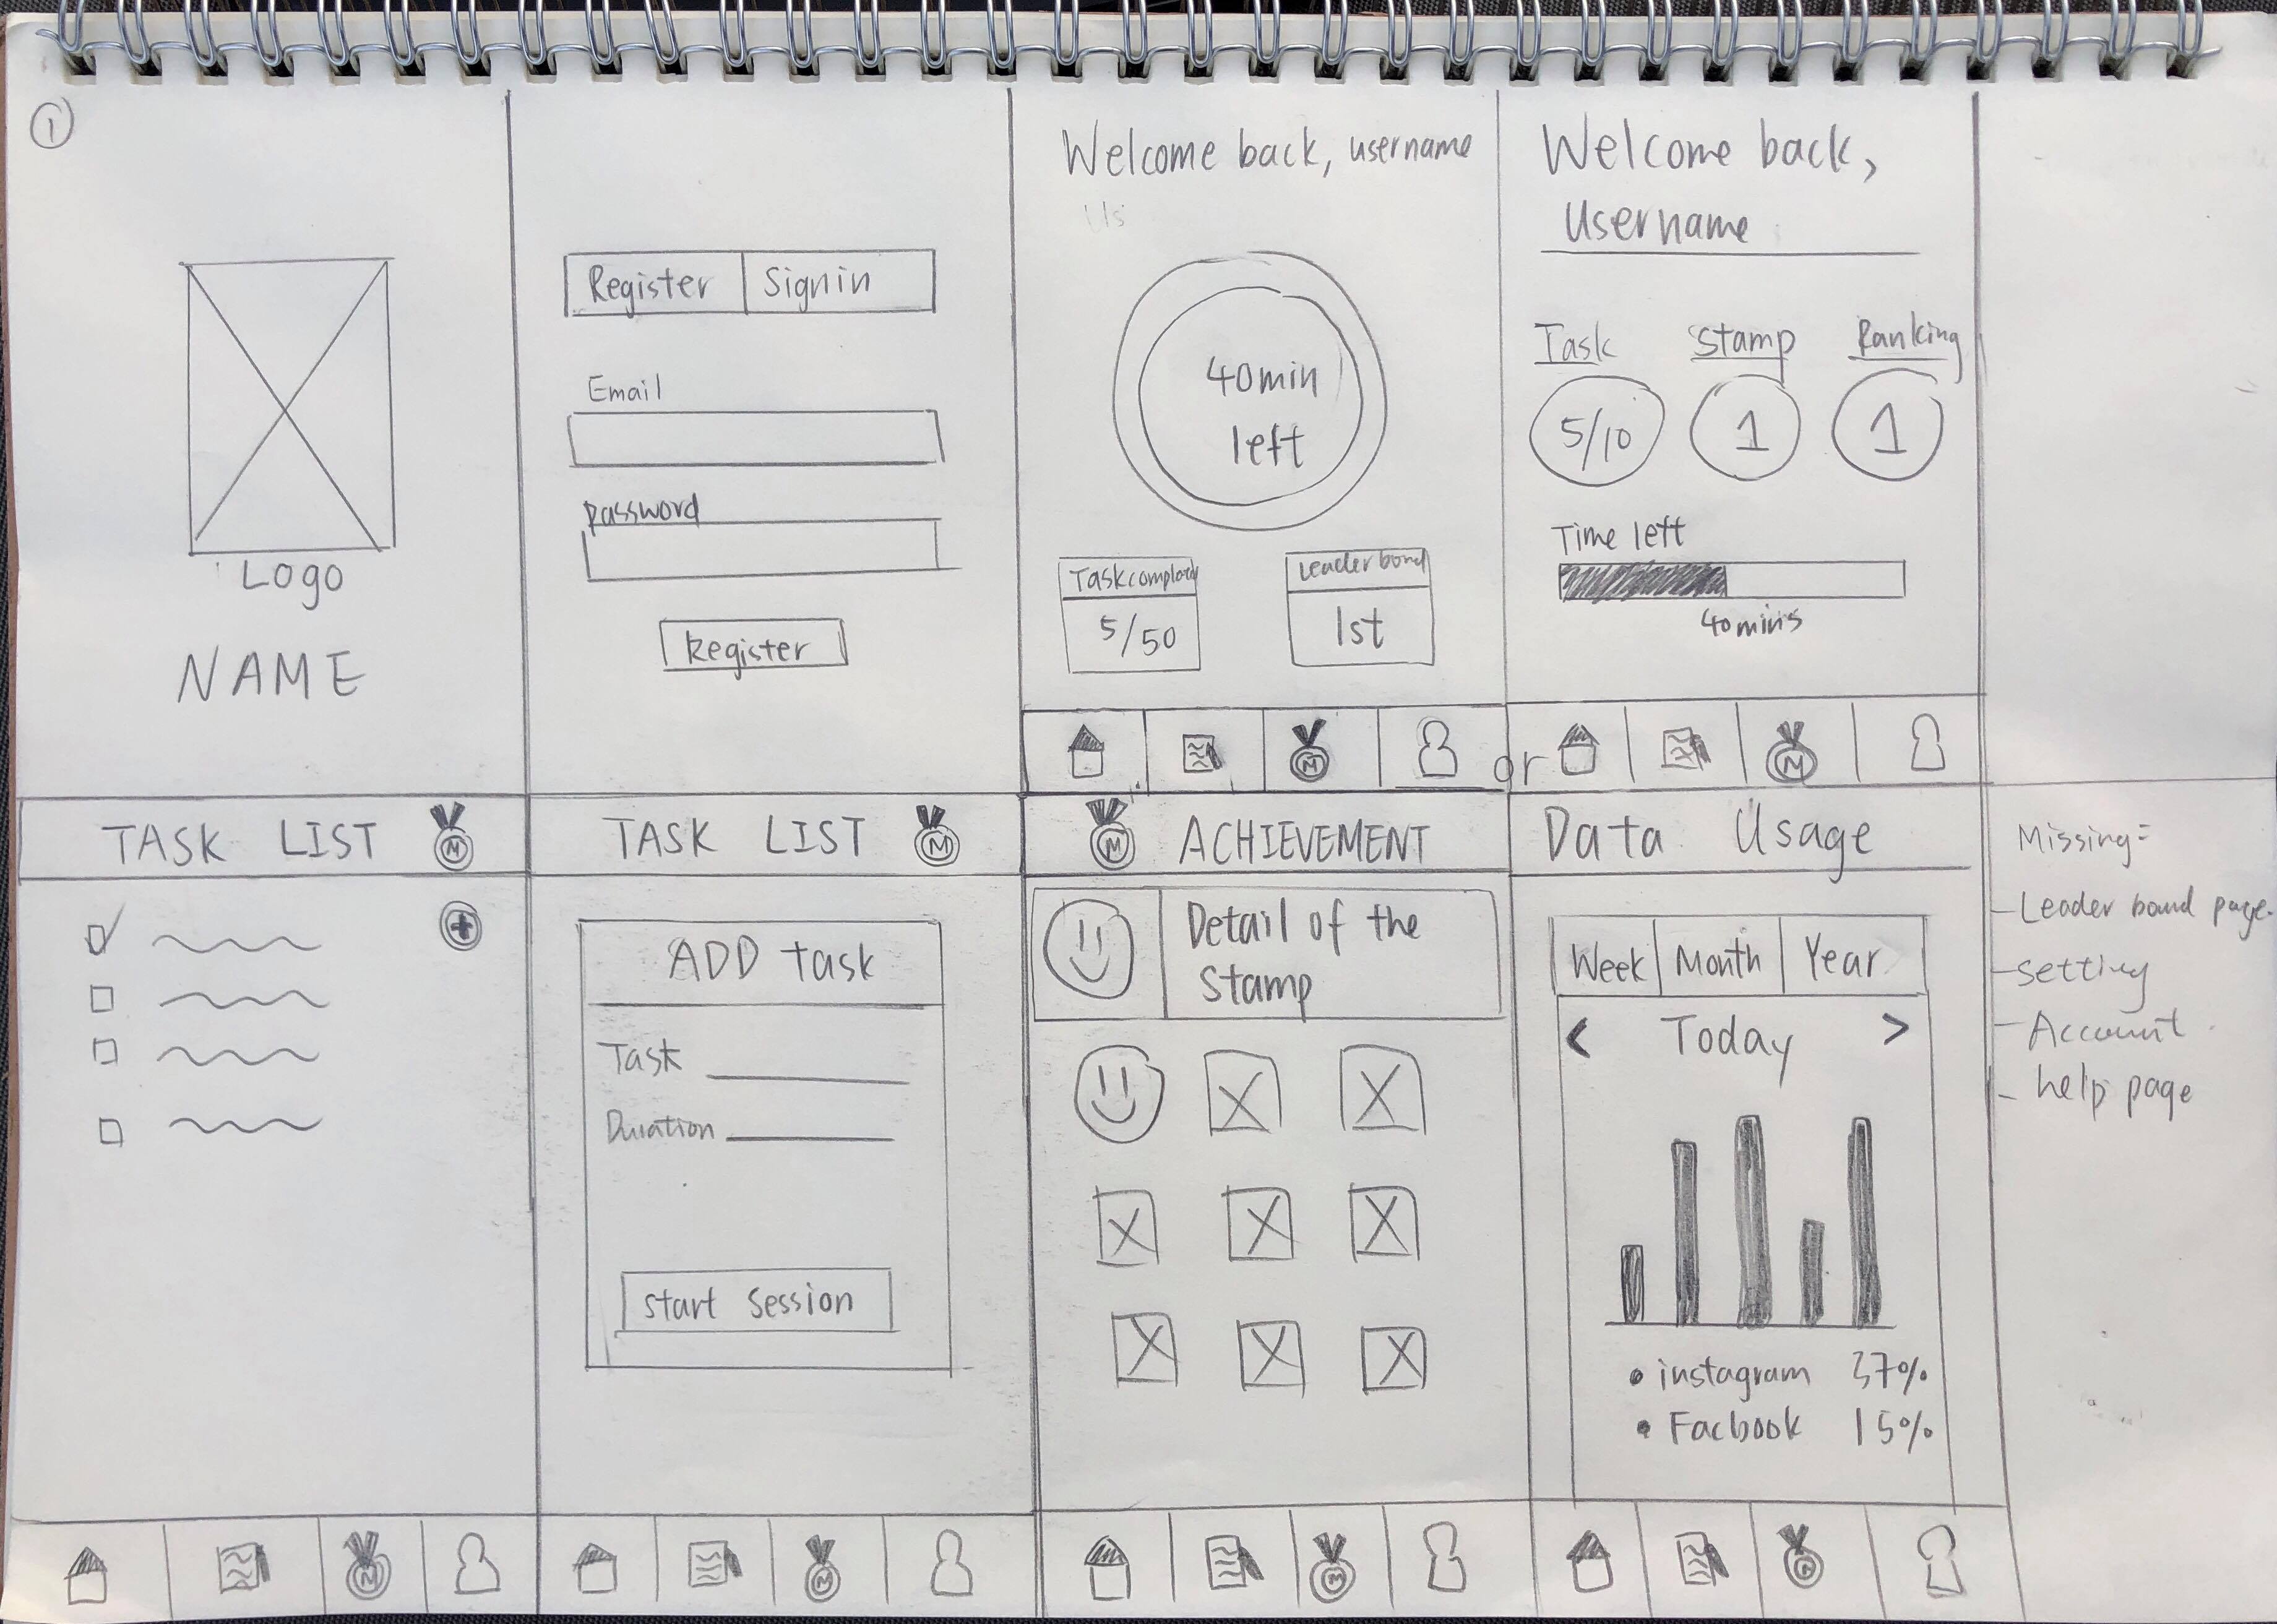 1
Logo
NAME
Register Signin
Email
password
Register
Welcome back, username
Us
40min
left
5/50
1st
or
Welcome back,
Username
Task Stamp Ranking
5/10 1 1
Time left
40mins
TASK LIST M
TASK LIST M
ADD task
Task
Duration
start session
M ACHIEVEMENT
Detail of the
stamp
Data Usage
Week Month Year
< Today >
• instagram 37%
• Facbook 15%
Missing=
- Leader board page.
- setting
- Account
- help page